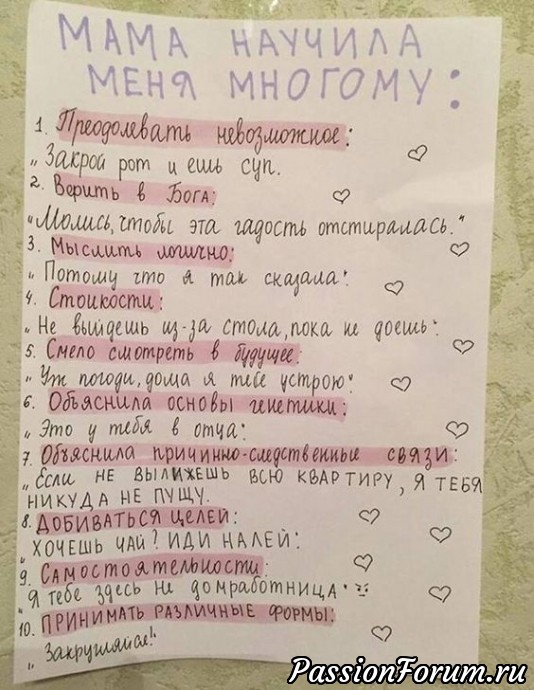 МАМА НАУЧИЛА
МЕНЯ МНОГОМУ:
1. Преодолевать невозможное:
„Закрой рот и ешь суп.
2. Верить в Бога:
„Молись, чтобы эта гадость отстиралась."
3. Мыслить логично:
„Потому что я так сказала".
4. Стойкости:
„Не выйдешь из-за стола, пока не доешь".
5. Смело смотреть в будущее:
„Уж погоди, дома я тебе устрою"
6. Объяснила основы генетики:
„Это у тебя в отца".
7. Объяснила причинно-следственные связи:
„Если не вылижешь всю квартиру, я тебя
никуда не пущу.
8. Добиваться целей:
„Хочешь чай? Иди налей".
9. Самостоятельности:
„Я тебе здесь не домработница"
10. Принимать различные формы:
„Закругляйся!"
PassionForum.ru